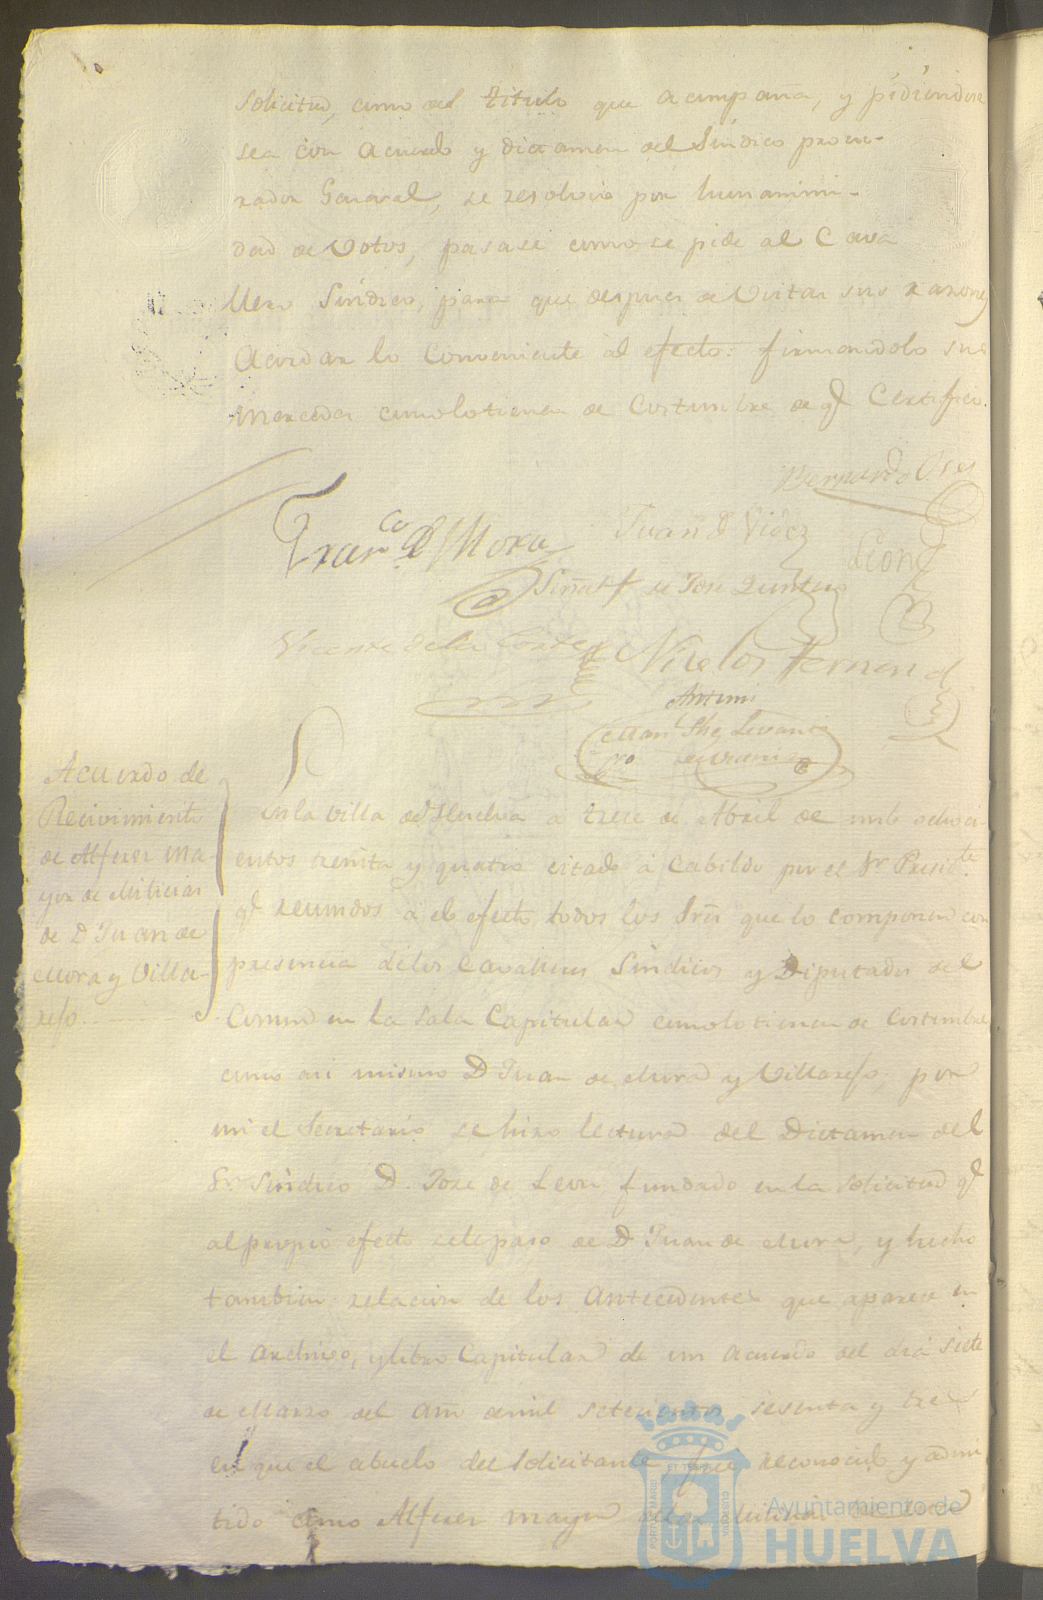 Solicitud, como del titulo que acompaña, y pidiendose
sea con acuerdo y dictamen del Sindico procu-
rador General, se resolvio por hunanimi-
dad de Votos, pasase como se pide al Cava
llero Sindico, para que despues de Vistas sus razones
Acordar lo conveniente al efecto: firmandolo sus
mercedes como lo tienen de Costumbre de q.e Certifico.
Bernardo
Fran.co de Mora
Juan
Leon
Señal + de Jose Quintero
Vicente de la Corte
Nicolas Fernand
Antemi
Man.l
Acuerdo de
Recivimiento
de Alferez Ma-
yor de Milicias
de D. Juan de
Mora y Villa-
refo
En la Villa de Huelva a trece de Abril de mil ochoci-
entos treinta y quatro citado á Cabildo por el S.r Presid.te
q.e reunidos á el efecto todos los Srês que lo componen con
presencia de los Cavalleros Sindicos y Diputados del
Comun en la Sala Capitular como lo tienen de Costumbre
como asi mismo D Juan de Mora y Villarefo, por
mi el Secretario se hizo lectura del Dictamen del
S.r Sindico D. Jose de Leon fundado en la solicitud q.e
al propio efecto se le paso de D Juan de Mora, y hecho
tambien relacion de los Antecedentes que aparece en
el archivo, y libro Capitular de un acuerdo del dia siete
de Marzo del año de mil setecientos sesenta y tres
en que el abuelo del solicitante fue reconocido y admi
tido como Alferez mayor de las Milicias
Ayuntamiento de
HUELVA